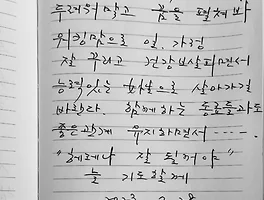 두려워 말고 꿈을 펼쳐봐
워킹맘으로 일, 가정
잘 꾸리고 건강보살피면서
능력있는 화가로 살아가길
바란다. 함께하는 동료들과도
좋은관계 유지하면서 .....
"언제나 잘 될꺼야"
늘 기도할께